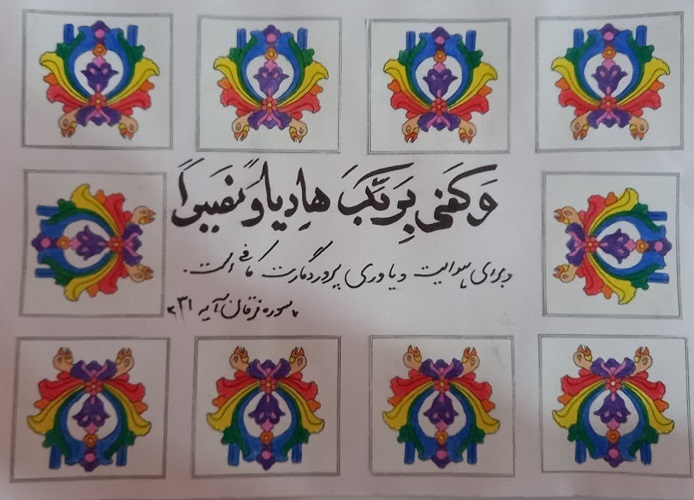 وَ کَفی بِرَبِّکَ هادِیاً وَ نَصیراً
و برای هدایت و یاوری پروردگارت کافی است.
سوره فرقان آیه ۳۱